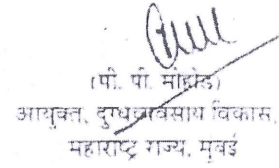 (पी. पी. मोहोड)
आयुक्त, दुग्धव्यवसाय विकास,
महाराष्ट्र राज्य, मुंबई